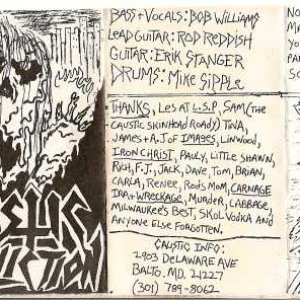 BASS+VOCALS: BOB WILLIAMS
LEAD GUITAR: ROD REDDISH
GUITAR: ERIK STANGER
DRUMS: MIKE SIPPLE
THANKS, LES AT U.S.P., SAM (THE
CAUSTIC SKINHEAD ROADY) TINA,
JAMES + A.J. OF IMAGES, LINWOOD,
IRON CHRIST, PAULY, LITTLE SHAWN,
RICH, F.J., JACK, DAVE, TOM, BRIAN,
CARLA, RENEE, RODS MOM, CARNAGE
IRA + WRECKAGE, MURDER, CABBAGE,
MILWAUKEE'S BEST, SKOL VODKA AND
ANYONE ELSE FORGOTTEN.
CAUSTIC INFO:
2903 DELAWARE AVE
BALTO. MD. 21227
(301) 789-8062